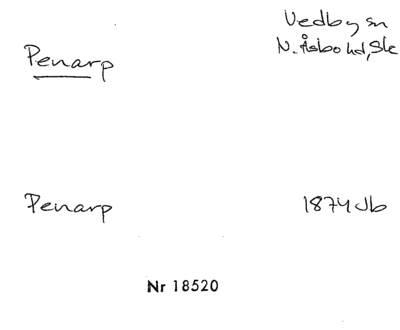 Vedby sn
Penarp
N. Åsbo hd, Sk
Penarp
1874 Jb
Nr 18520